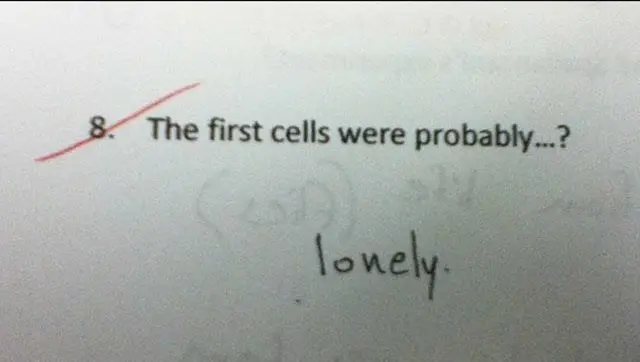 8. The first cells were probably...?
lonely.